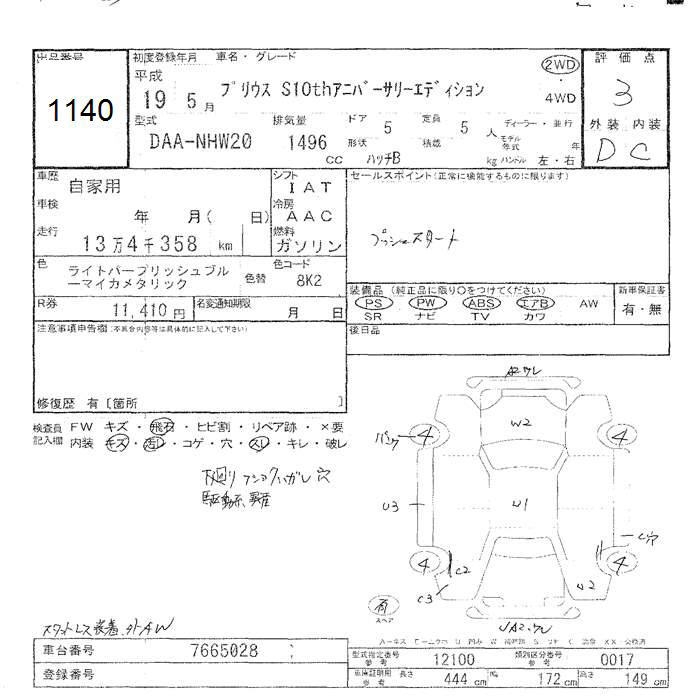 出品番号
1140
初度登録年月 車名・グレード
平成
19 5月
プリウス S10thアニバーサリーエディション
2WD
4WD
評価点
3
型式
DAA-NHW20
排気量
1496
CC
ドア 5
形状 ハッチB
定員 5 人
積載 kg
ディーラー・並行
モデル年式 年
ハンドル 左・右
外装 内装
D C
車歴 自家用
シフト
IAT
セールスポイント(正常に機能するものに限ります)
車検 年 月( 日)
冷房
AAC
走行
13万4千358 km
燃料
ガソリン
プッシュスタート
色 ライトパープリッシュブル
ーマイカメタリック
色替
色コード
8K2
装備品 (純正品に限り〇をつけてください)
新車保証書
PS PW ABS エアB AW
有・無
SR ナビ TV カワ
R券 11,410円
名変通知期限 月 日
後日品
注意事項申告欄(不具合内容等は具体的に記入して下さい)
修復歴 有〔箇所 〕
検査員
記入欄
FW キズ・飛石・ヒビ割・リペア跡・×要
内装 キズ・汚レ・コゲ・穴・スレ・キレ・破レ
下廻り
穴
駆動系 異音
W2
パンク
4
4
U3
U1
4
4
C2
C3
U2
有
スペア
スタットレス装着
車台番号 7665028
登録番号
型式指定番号
参考
12100
類別区分番号
参考
0017
車庫証明用
参考
長さ 444 cm
幅 172 cm
高さ 149 cm